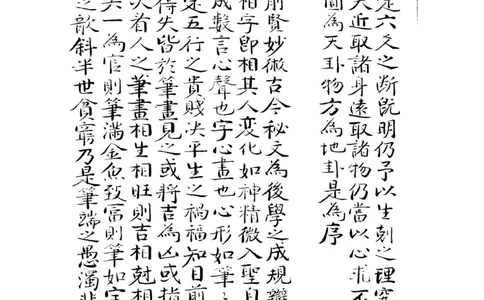 是六爻之断既明仍予以生剋之理究
大近取諸身遠取諸物仍當以心乖不
圓為天卦物方為地卦是為序
前賢妙術古今秘文為後學之成規辯
相字卽相其人变化如神精微入聖目
成數言心聲也字心畫也心形如筆
是五行之貴賤决平生之禍福知目前
得失皆於筆畫見之或將吉為凶或指
次看人之筆畫相生相旺則吉相尅相
夫一為官則筆滿金魚致冨則筆如宝
之歆斜半世貧窮乃是筆端之愚濁非